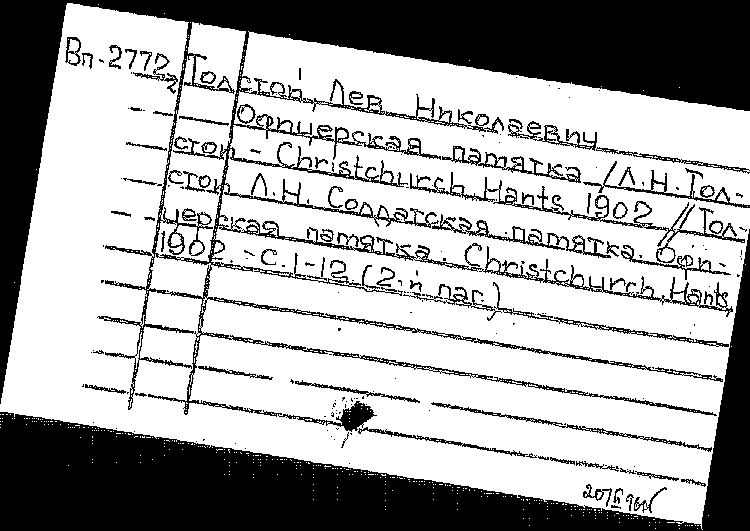 Вп-2772 Толстой, Лев Николаевич
2
Офицерская памятка / Л.Н. Тол-
стой - Christchurch, Hants, 1902 // Тол-
стой Л.Н. Солдатская памятка. Офи-
церская памятка. Christchurch, Hants,
1902. - С. 1-12 (2-й паг.)